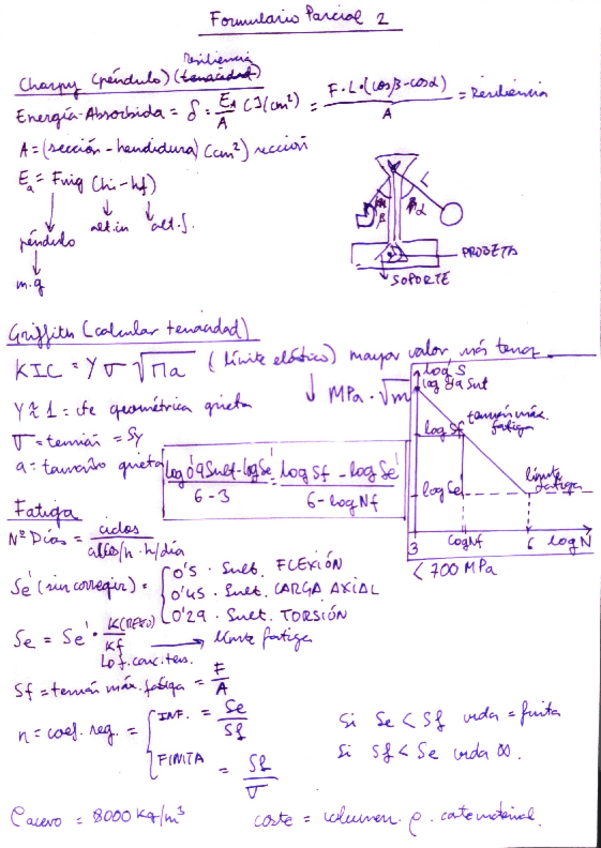 Formulario Parcial 2
Charpy (péndulo) (tenacidad) resiliencia
Energía Absorbida = δ = EA/A (J/cm²) = F·L·(cosβ-cosα)/A = Resiliencia
A = (sección - hendidura) (cm²) sección
Ea = Fmg (hi-hf)
péndulo alt.in alt.f.
m·g
L
β α
PROBETA
SOPORTE
Griffith (calcular tenacidad)
KIC = Y σ √Πa (límite elástico) mayor valor, más tenaz
Y ≈ 1 = cte geométrica grieta
MPa·√m
σ = tensión = Sy
a = tamaño grieta
log0'9Sult-logSe'/6-3 = logSf-logSe'/6-logNf
log S
log 0'9 Sult
tensión máx. fatiga
log Sf
límite fatiga
log Se'
3 logNf 6 log N
< 700 MPa
Fatiga
Nº Días = ciclos/ciclos/h·h/día
Se' (sin corregir) = 0'5 · Sult. FLEXIÓN
0'45 · Sult. CARGA AXIAL
0'29 · Sult. TORSIÓN
Se = Se' · K/Kf → límite fatiga
f. conc. tens.
Sf = tensión máx. fatiga = F/A
n = coef. seg. = INF. = Se/Sf
FINITA = Sf/σ
Si Se < Sf vida = finita
Si Sf < Se vida ∞.
ρ acero = 8000 kg/m³
coste = volumen · ρ · coste material.